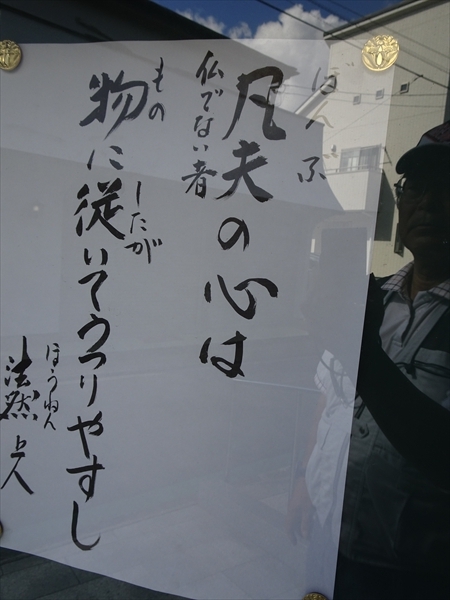 ぼんぶ
凡夫の心は
仏でない者
もの したが
物に従いてうつりやすし
ほうねん
法然上人